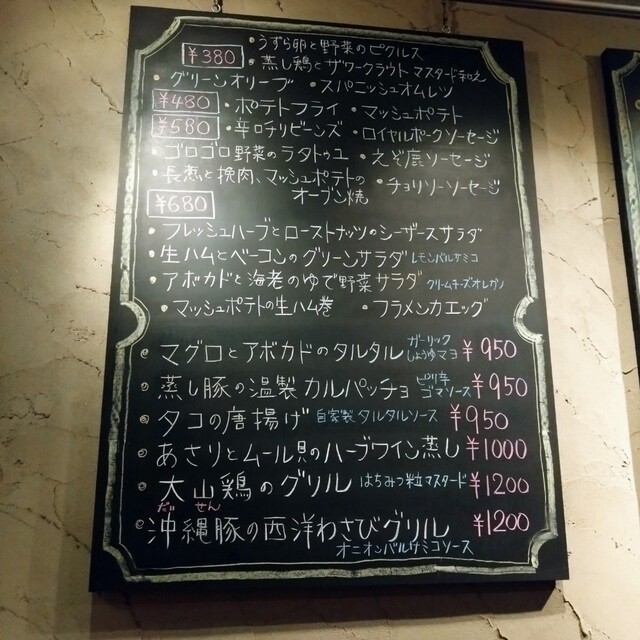 ¥380 ・うずら卵と野菜のピクルス
・蒸し鶏とザワークラウト マスタード和え
・グリーンオリーブ ・スパニッシュオムレツ
¥480 ・ポテトフライ ・マッシュポテト
¥580 ・辛口チリビーンズ ・ロイヤルポークソーセージ
・ゴロゴロ野菜のラタトゥユ ・えぞ鹿ソーセージ
・長葱と挽肉、マッシュポテトの
オーブン焼 ・チョリソーソーセージ
¥680
・フレッシュハーブとローストナッツのシーザーサラダ
・生ハムとベーコンのグリーンサラダ レモンバルサミコ
・アボカドと海老のゆで野菜サラダ クリームチーズオレガノ
・マッシュポテトの生ハム巻 ・フラメンカエッグ
マグロとアボカドのタルタル ガーリック
しょうゆマヨ ¥950
蒸し豚の温製カルパッチョ ピリ辛
ゴマソース ¥950
タコの唐揚げ 自家製タルタルソース ¥950
あさりとムール貝のハーブワイン蒸し ¥1000
大山鶏のグリル はちみつ粒マスタード ¥1200
だいせん
沖縄豚の西洋わさびグリル ¥1200
オニオンバルサミコソース